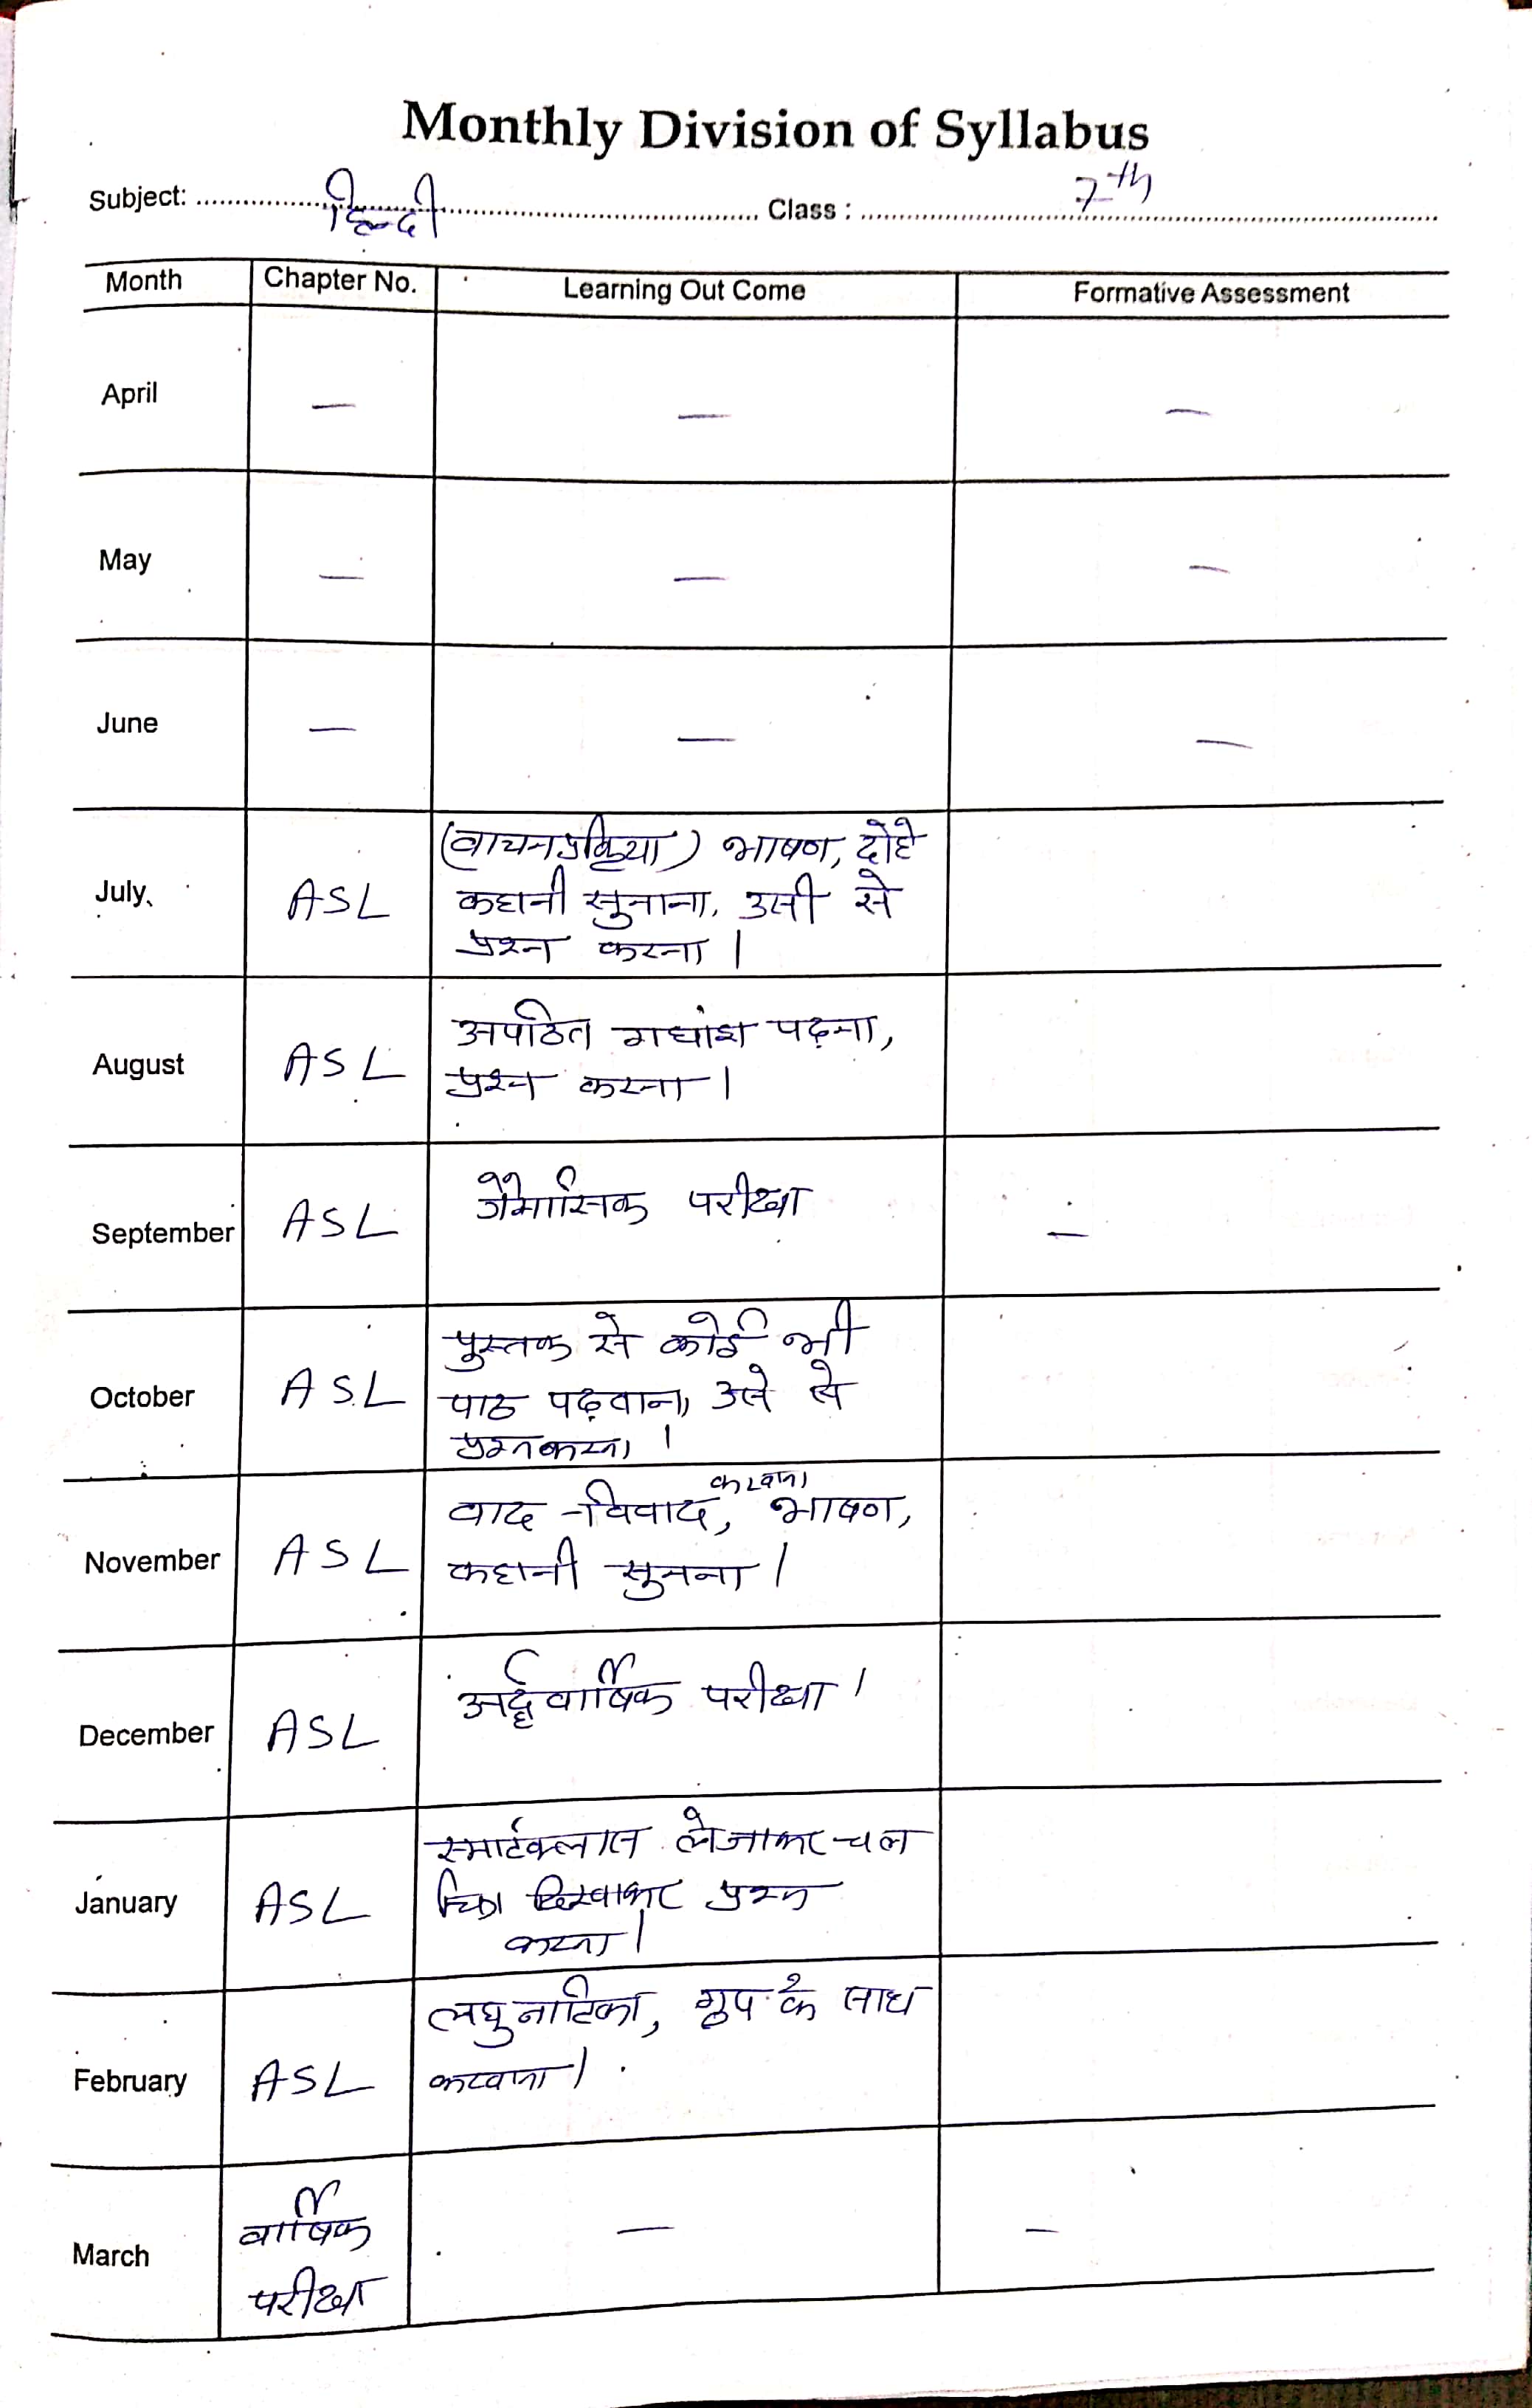 Monthly Division of Syllabus
Subject: हिन्दी Class : 7th
Month Chapter No. Learning Out Come Formative Assessment
April — — —
May — — —
June — — —
July ASL (वाचन प्रक्रिया) भाषण, दोहे
कहानी सुनाना, उसी से
प्रश्न करना।
August ASL अपठित गद्यांश पढ़ना,
प्रश्न करना।
September ASL त्रैमासिक परीक्षा —
October ASL पुस्तक से कोई भी
पाठ पढ़वाना, उसे से
प्रश्न करना।
November ASL वाद-विवाद, करवाना भाषण,
कहानी सुनना।
December ASL अर्द्धवार्षिक परीक्षा।
January ASL स्मार्टक्लास लेजाकर चल
चित्र दिखाकर प्रश्न
करना।
February ASL लघु नाटिका, ग्रुप के साथ
करवाना।
March वार्षिक
परीक्षा — —